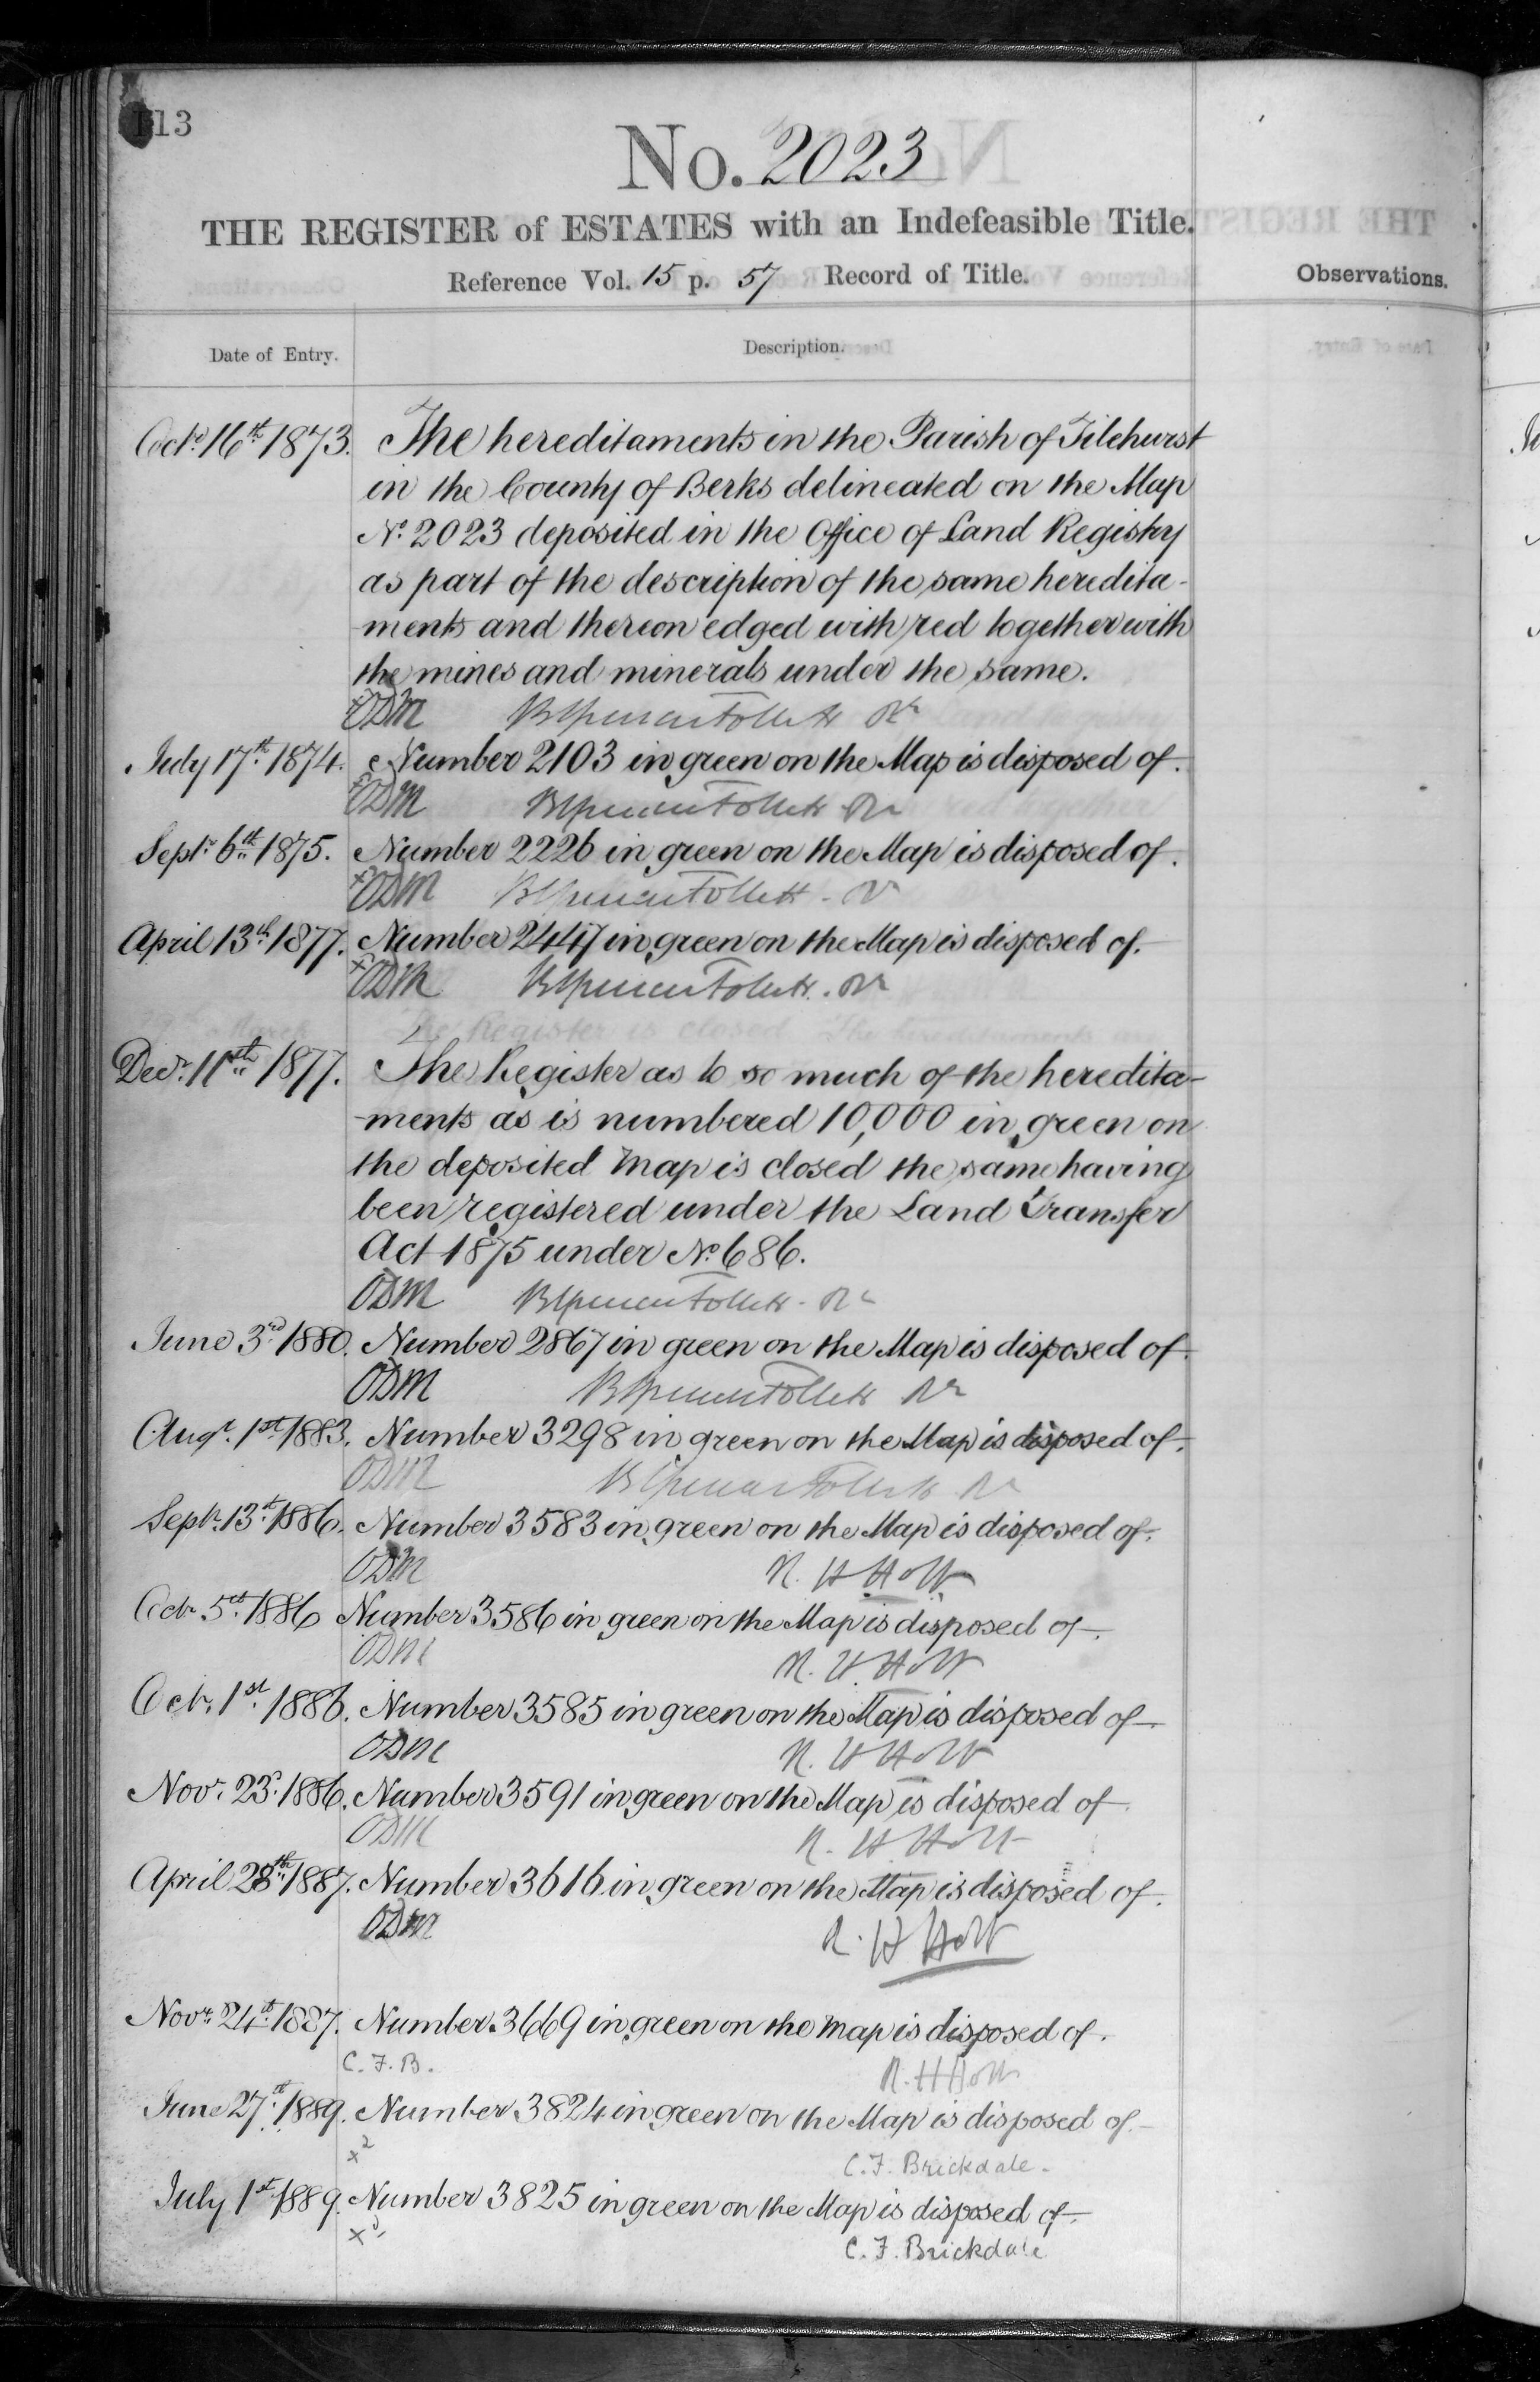 113
No. 2023
THE REGISTER of ESTATES with an Indefeasible Title.
Reference Vol. 15 p. 57 Record of Title.
Observations.
Date of Entry. Description.
Octr. 16th 1873. The hereditaments in the Parish of Tilehurst
in the County of Berks delineated on the Map
No. 2023 deposited in the Office of Land Registry
as part of the description of the same heredita-
ments and thereon edged with red together with
the mines and minerals under the same.
ODM
July 17th 1874. Number 2103 in green on the Map is disposed of.
ODM
Septr. 6th 1875. Number 2226 in green on the Map is disposed of.
ODM
April 13th 1877. Number 2447 in green on the Map is disposed of.
ODM
Decr. 11th 1877. The Register as to so much of the heredita-
-ments as is numbered 10,000 in green on
the deposited Map is closed the same having
been registered under the Land Transfer
Act 1875 under No. 686.
ODM
June 3rd 1880. Number 2867 in green on the Map is disposed of.
ODM
Augt. 1st 1883. Number 3298 in green on the Map is disposed of.
ODM
Septr. 13th 1886. Number 3583 in green on the Map is disposed of.
ODM R. H Holt
Octr. 5th 1886 Number 3586 in green on the Map is disposed of.
ODM R. H. Holt
Octr. 1st 1886. Number 3585 in green on the Map is disposed of.
ODM R. H Holt
Novr. 23rd 1886. Number 3591 in green on the Map is disposed of.
ODM R. H. Holt
April 28th 1887. Number 3616 in green on the Map is disposed of.
ODM R. H Holt
Novr. 24th 1887. Number 3669 in green on the Map is disposed of.
C. F. B. R. H Holt
June 27th 1889. Number 3824 in green on the Map is disposed of.
C. F. Brickdale.
July 1st 1889. Number 3825 in green on the Map is disposed of.
C. F. Brickdale